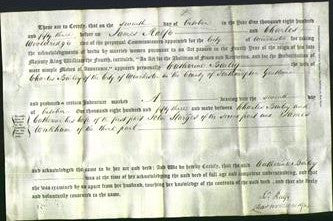 These are to Certify, that on the seventh day of October in the Year One thousand eight hundred
and fifty three before James Kelso and Charles
Wooldridge two of the perpetual Commissioners appointed for the City of Winchester for taking
the acknowledgments of deeds by married women pursuant to an Act passed in the Fourth Year of the reign of his late
Majesty King William the Fourth, intituled, "An Act for the Abolition of Fines and Recoveries, and for the Substitution of
more simple Modes of Assurance," appeared personally Catherine Bailey the wife of
Charles Bailey of the City of Winchester in the County of Southampton Gentleman
and produced a certain Indenture marked A bearing date the seventh day
of October One thousand eight hundred and fifty three and made between Charles Bailey and
Catherine his wife of the first part John of the second part and James
of the third part
and acknowledged the same to be her act and deed; And We do hereby Certify, that the said Catherine Bailey
was at the time of her acknowledging the said deed of full age and competent understanding, and that
she was examined by us apart from her husband, touching her knowledge of the contents of the said deed, and that she freely
and voluntarily consented to the same.